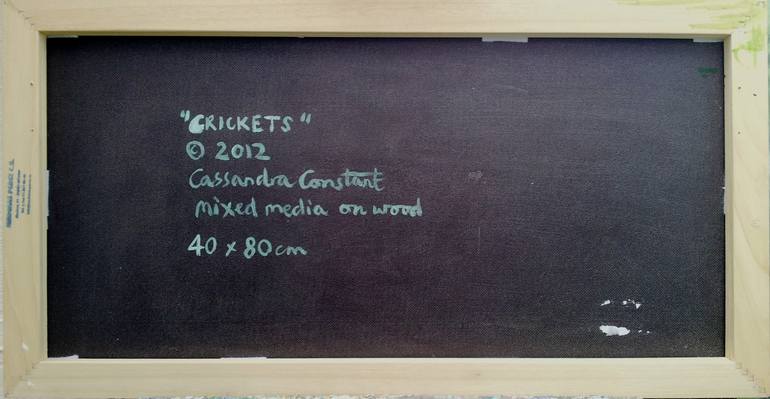 "CRICKETS"
© 2012
Cassandra Constant
mixed media on wood
40 x 80 cm